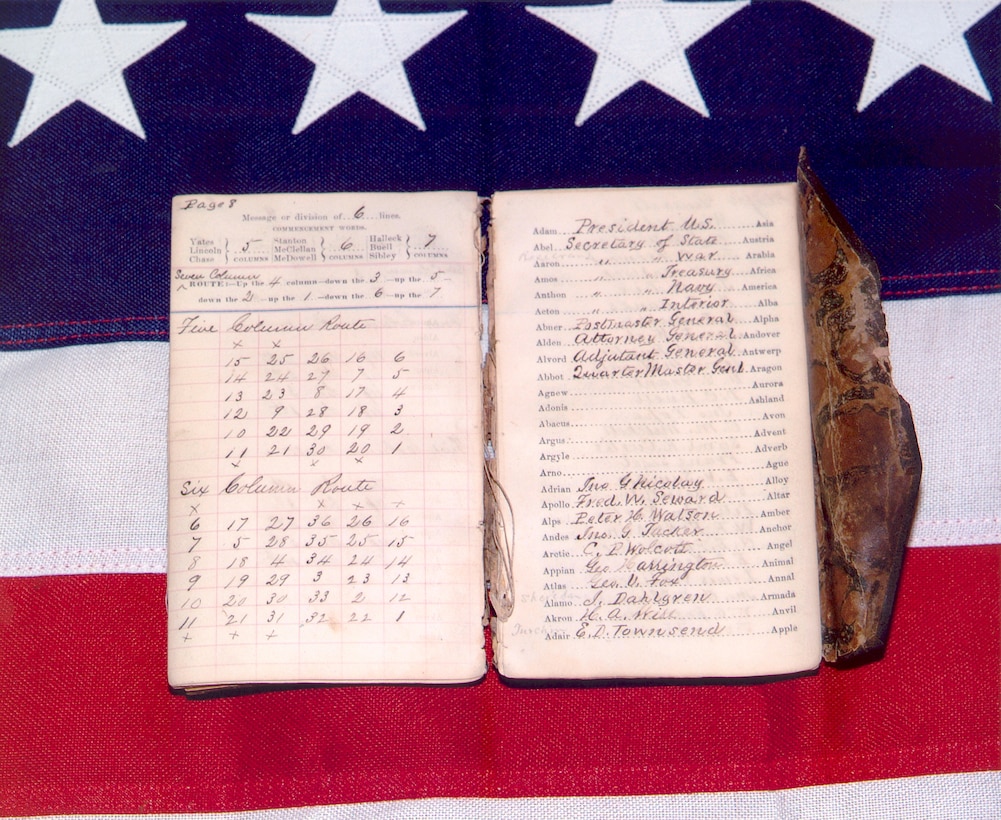 Page 8
Message or division of 6 lines.
COMMENCEMENT WORDS.
Yates Stanton Halleck
Lincoln } 5 McClellan } 6 Buell } 7
Chase COLUMNS McDowell COLUMNS Sibley COLUMNS
Seven Column
^ ROUTE:—Up the 4 column—down the 3—up the 5—
down the 2—up the 1—down the 6—up the 7
Five Column Route
x x
15 25 26 16 6
14 24 27 7 5
13 23 8 17 4
12 9 28 18 3
10 22 29 19 2
11 21 30 20 1
x x x
Six Column Route
x x x +
6 17 27 36 26 16
7 5 28 35 25 15
8 18 4 34 24 14
9 19 29 3 23 13
10 20 30 33 2 12
11 21 31 32 22 1
+ + +
Adam President U.S. Asia
Abel Secretary of State Austria
Aaron " " War Arabia
Amos " " Treasury Africa
Anthon " " Navy America
Acton " Interior Alba
Abner Postmaster General Alpha
Alden Attorney General Andover
Alvord Adjutant General Antwerp
Abbot Quarter Master Genl Aragon
Agnew Aurora
Adonis Ashland
Abacus Avon
Argus Advent
Argyle Adverb
Arno Ague
Adrian Jno. G Nicolay Alloy
Apollo Fred. W. Seward Altar
Alps Peter H. Watson Amber
Andes Jno. G. Tucker Anchor
Arctic C. P. Wolcott Angel
Appian Geo Harrington Animal
Atlas Geo. V. Fox Annal
Alamo J. Dahlgren Armada
Akron H. A. Anvil
Adair E. D. Townsend Apple